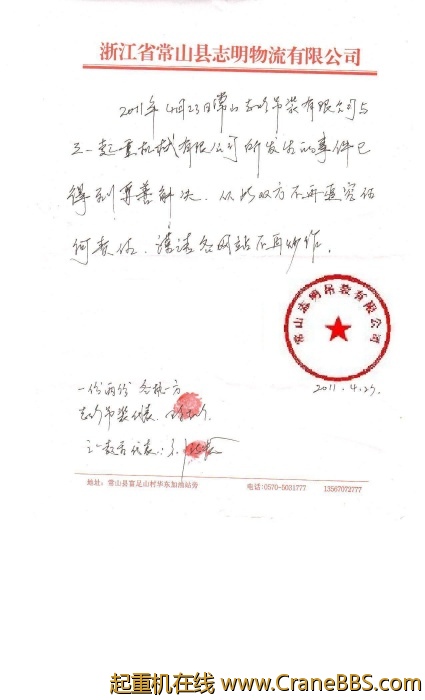 浙江省常山县志明物流有限公司
2011年4月23日常山志明吊装有限公司与
三一起重机械有限公司所发生的事件已
得到妥善解决。从此双方不再追究任
何责任。谨请各网站不再炒作。
常山志明吊装有限公司
2011.4.27.
一份两份 各执一方
志明吊装代表：
三一起重代表：
地址：常山县富足山村华东加油站旁 电话:0570-5031777 13567072777
起重机在线 © www.CraneBBS.com